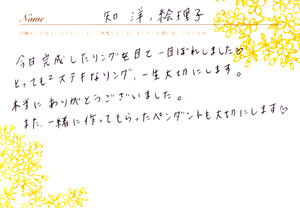 Name 知洋、絵理子
今日完成したリングを目て一目ぼれしました♡
とってもステキなリング、一生大切にします。
本当にありがとうございました。
また、一緒に作ってもらったペンダントも大切にします♡